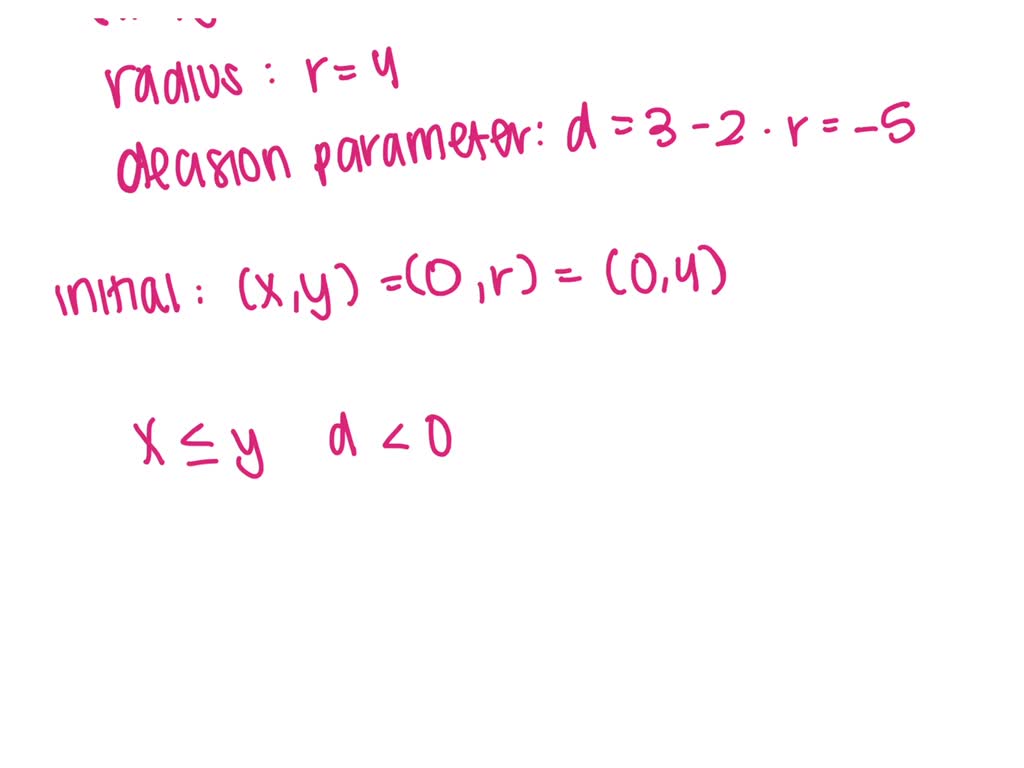 radius: r = 4
decision parameter: d = 3 - 2 · r = -5
initial: (x,y) = (0,r) = (0,4)
x ≤ y d < 0